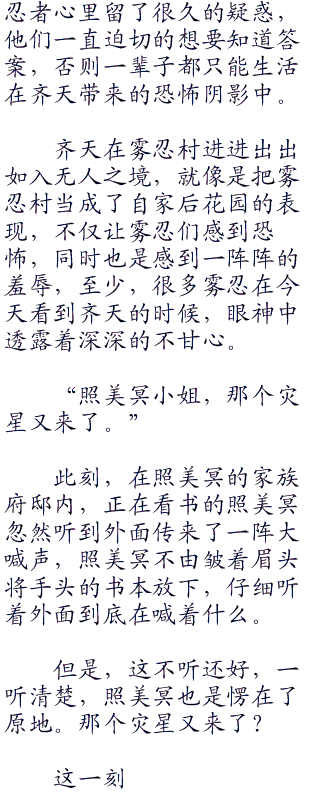 忍者心里留了很久的疑惑，
他们一直迫切的想要知道答
案，否则一辈子都只能生活
在齐天带来的恐怖阴影中。
齐天在雾忍村进进出出
如入无人之境，就像是把雾
忍村当成了自家后花园的表
现，不仅让雾忍们感到恐
怖，同时也是感到一阵阵的
羞辱，至少，很多雾忍在今
天看到齐天的时候，眼神中
透露着深深的不甘心。
“照美冥小姐，那个灾
星又来了。”
此刻，在照美冥的家族
府邸内，正在看书的照美冥
忽然听到外面传来了一阵大
喊声，照美冥不由皱着眉头
将手头的书本放下，仔细听
着外面到底在喊着什么。
但是，这不听还好，一
听清楚，照美冥也是愣在了
原地。那个灾星又来了？
这一刻